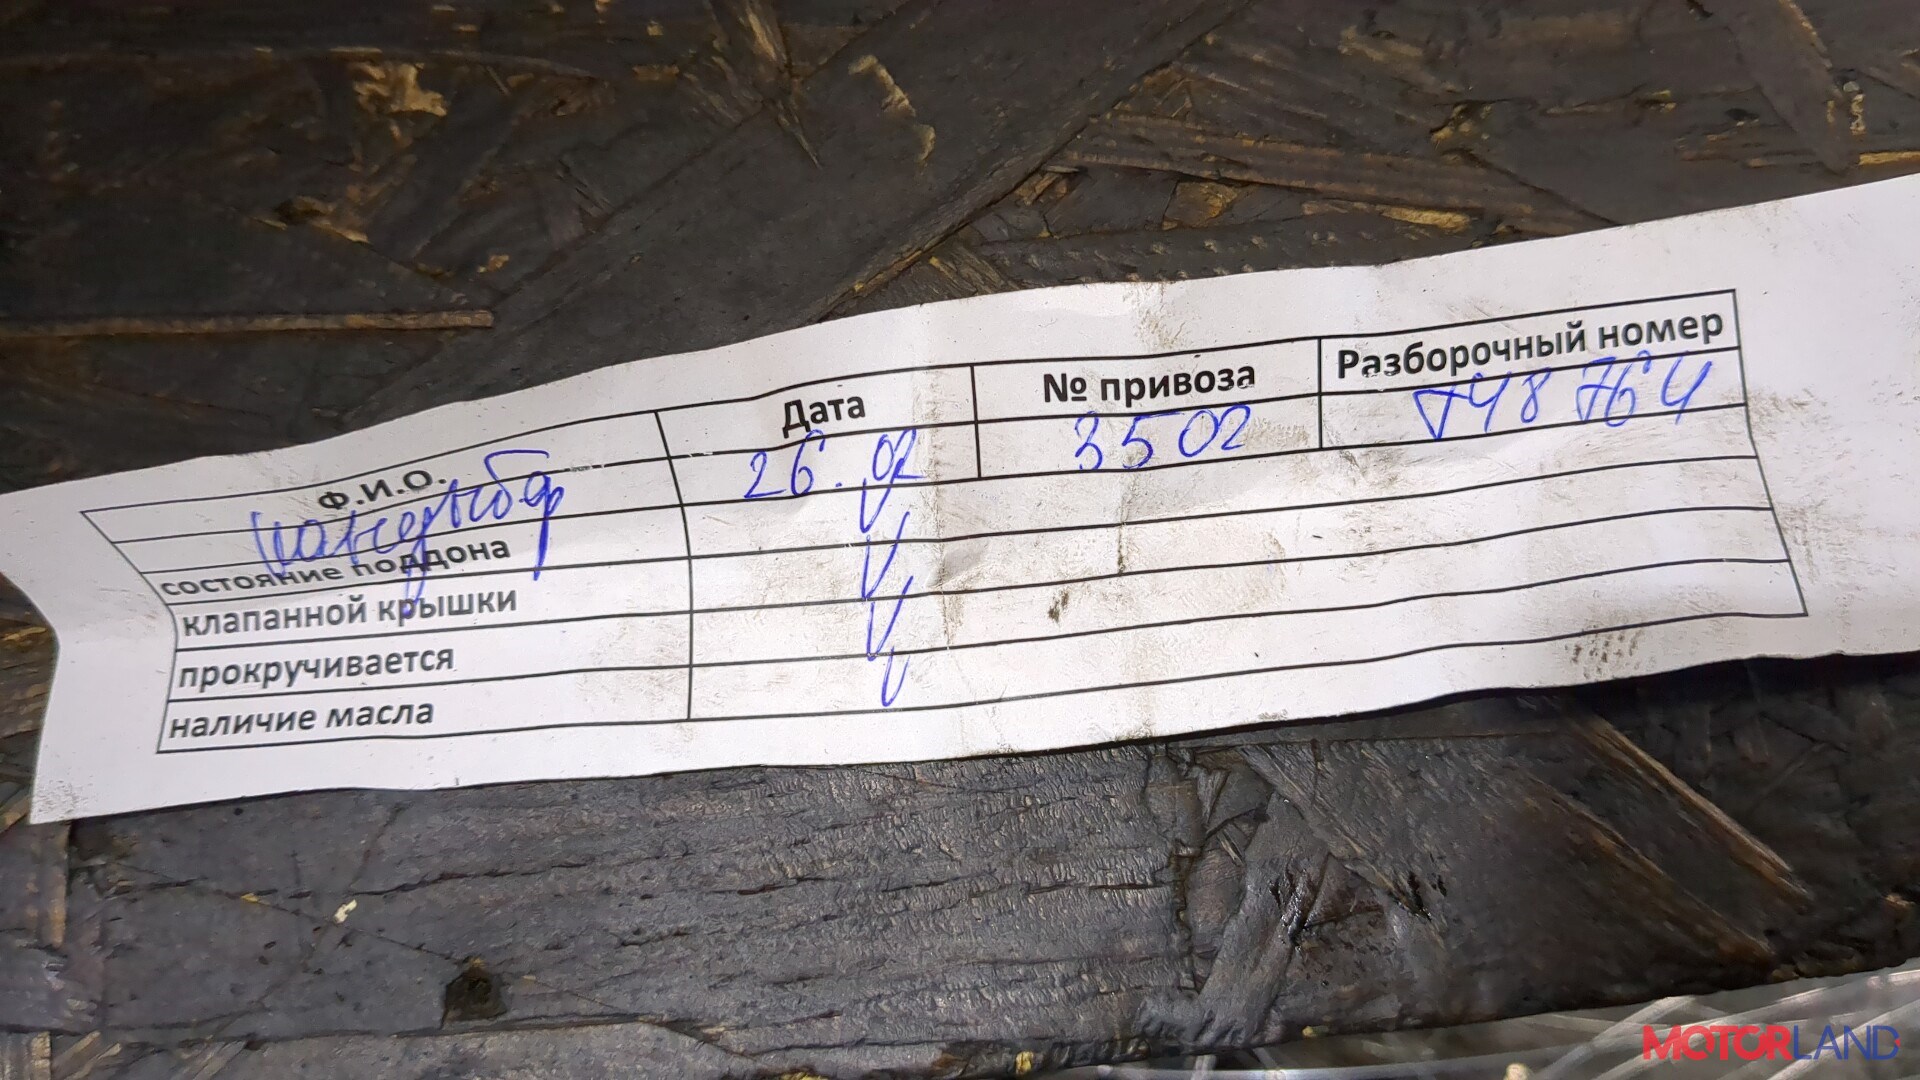 Ф.И.О. Дата № привоза Разборочный номер
26.02 3502 748764
состояние поддона V
клапанной крышки V
прокручивается V
наличие масла V
MOTORLAND